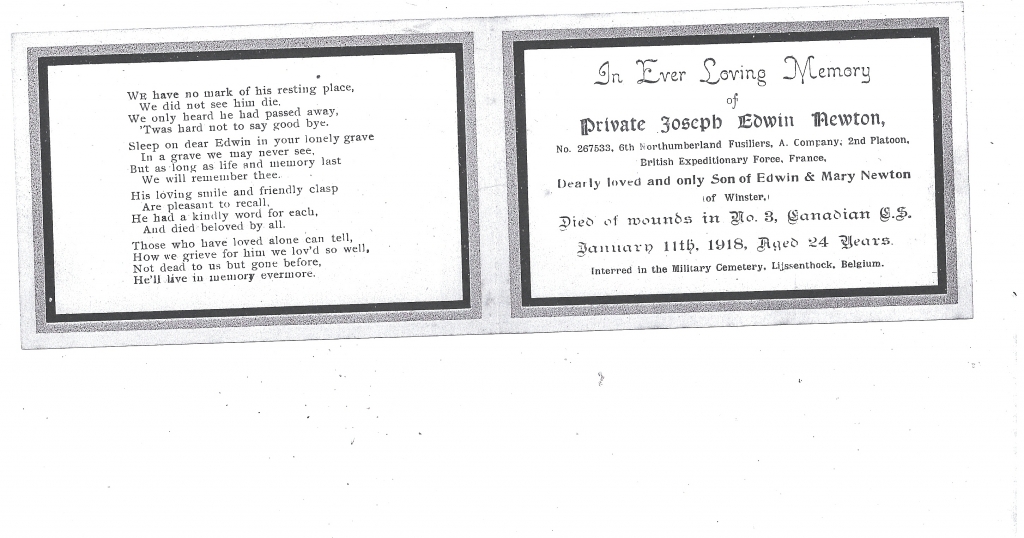 WE have no mark of his resting place,
We did not see him die,
We only heard he had passed away,
'Twas hard not to say good bye.
Sleep on dear Edwin in your lonely grave
In a grave we may never see,
But as long as life and memory last
We will remember thee.
His loving smile and friendly clasp
Are pleasant to recall,
He had a kindly word for each,
And died beloved by all.
Those who have loved alone can tell,
How we grieve for him we lov'd so well,
Not dead to us but gone before,
He'll live in memory evermore.
In Ever Loving Memory
of
Private Joseph Edwin Newton,
No. 267533, 6th Northumberland Fusiliers, A. Company, 2nd Platoon,
British Expeditionary Force, France,
Dearly loved and only Son of Edwin & Mary Newton
(of Winster,)
Died of wounds in No. 3, Canadian C.S.
January 11th, 1918, Aged 24 Years.
Interred in the Military Cemetery, Lijssenthock, Belgium.